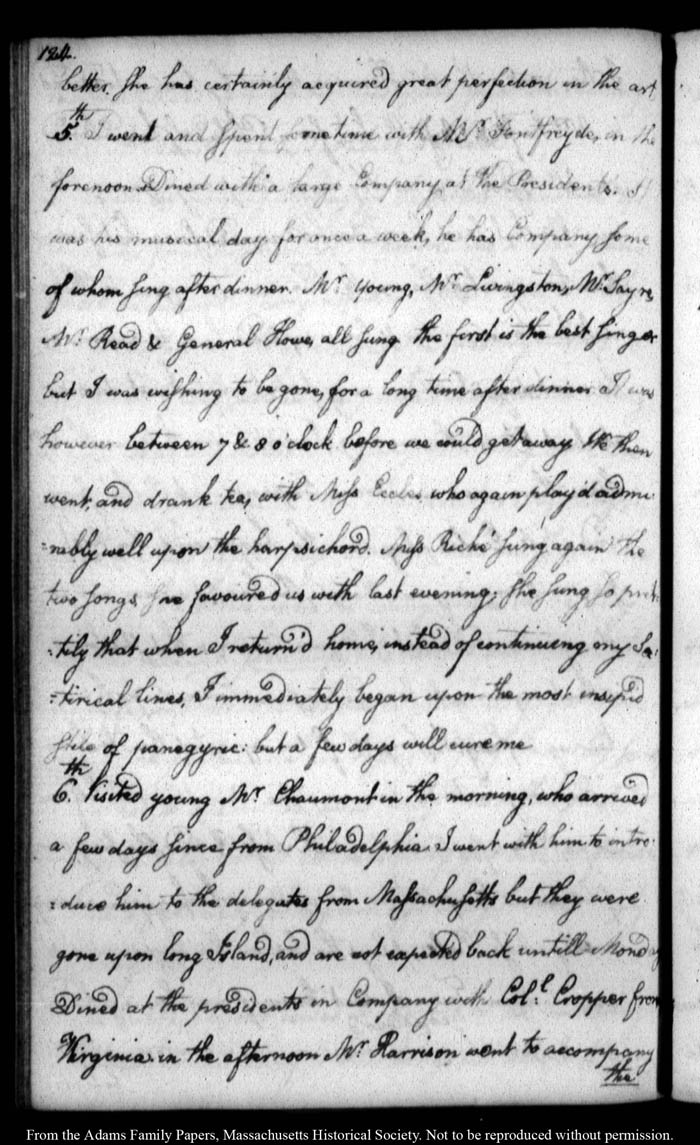 124.
better. She has certainly acquired great perfection in the art
5.th I went and spent sometime with Mr. Fontfreyde, in the
forenoon. Dined with a large Company at the Presidents. It
was his musical day for once a week, he has Company some
of whom sing after dinner. Mr. Young, Mr. Livingston, Mr. Sayre,
Mr. Read & General Howe, all sung the first is the best singer
but I was wishing to be gone, for a long time after dinner. It was
however between 7 & 8 o'clock before we could get away We then
went, and drank tea, with Miss Eccles who again play'd admi-
=rably well upon the harpsichord. Miss Riché sung again the
two songs, she favoured us with last evening; She sung so pret-
=tily that when I return'd home, instead of continueng my Sa-
=tirical lines, I immediately began upon the most insipid
stile of panegyric: but a few days will cure me
6.th Visited young Mr. Chaumont in the morning, who arrived
a few days since from Philadelphia. I went with him to intro-
=duce him to the delegates from Massachusetts but they were
gone upon long Island, and are not expected back untill Monday
Dined at the presidents in Company with Col:l Cropper from
Virginia. in the afternoon Mr. Harrison went to accompany
the
From the Adams Family Papers, Massachusetts Historical Society. Not to be reproduced without permission.